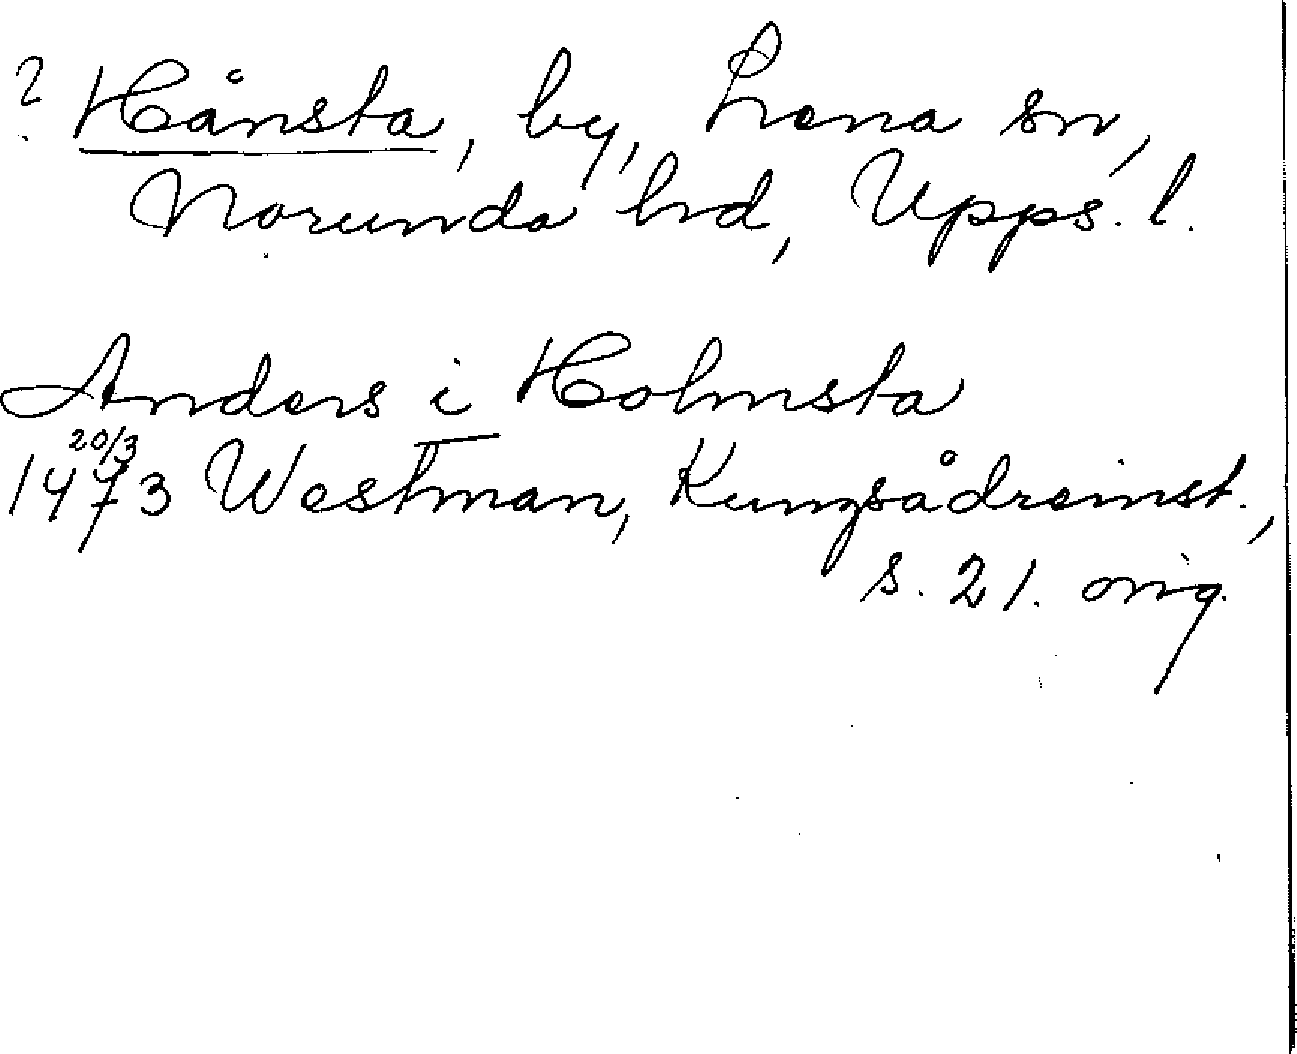 ? Hånsta, by, Lena sn,
Norunda hd, Upps. l.
Anders i Holmsta
20/3
1473 Westman, Kungsådreinst.,
s. 21. orig.